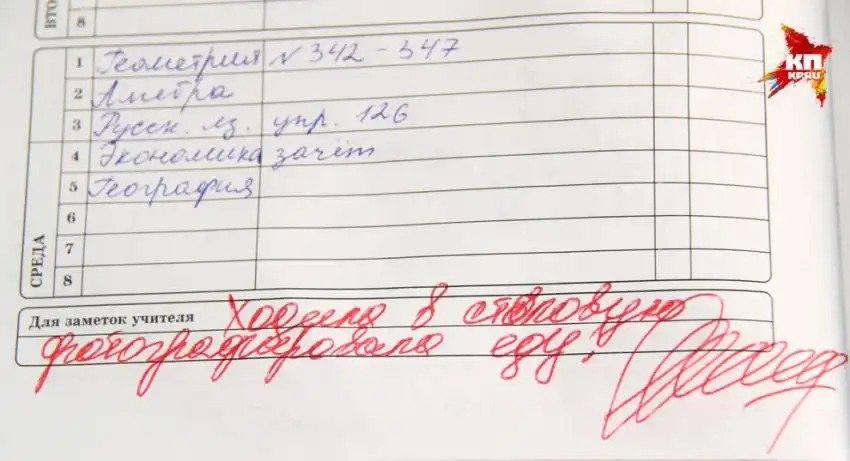 ВТО
8
1 Геометрия № 342 - 347
2 Алгебра
3 Русск. яз. упр. 126
4 Экономика зачёт
5 География
6
7
8
СРЕДА
КП
KP.RU
Для заметок учителя Ходила в столовую
фотографировала еду!